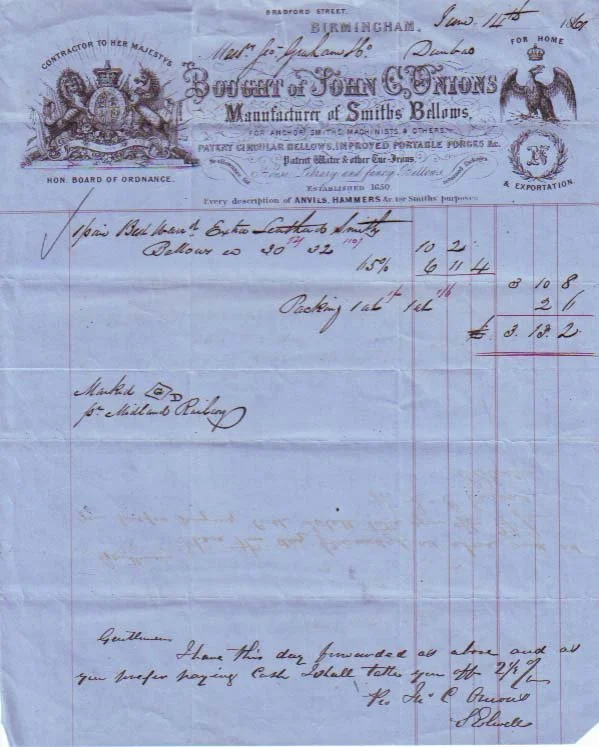 BRADFORD STREET.
BIRMINGHAM, June 14th 186
CONTRACTOR TO HER MAJESTYS
HON. BOARD OF ORDNANCE.
Messrs Geo. Graham & Co. Dunbar
FOR HOME
& EXPORTATION.
BOUGHT of JOHN C. ONIONS
Manufacturer of Smiths' Bellows,
FOR ANCHOR SMITHS, MACHINISTS, & OTHERS
PATENT CIRCULAR BELLOWS, IMPROVED PORTABLE FORGES &c.
Patent Water & other Tue-Irons.
House, Library and fancy Bellows
ESTABLISHED 1650
Every description of ANVILS, HAMMERS &c. for Smiths' purposes
1 pair Best Extra Leather'd Smiths
Bellows 30 32 10 2
65% 6 11 4
3 10 8
Packing 2 6
£ 3. 13. 2
Marked G D
pr Midland Railway
Gentlemen
I have this day forwarded as above and as
you prefer paying Cash I shall take you off 2½ %
Pro Jno C Onions